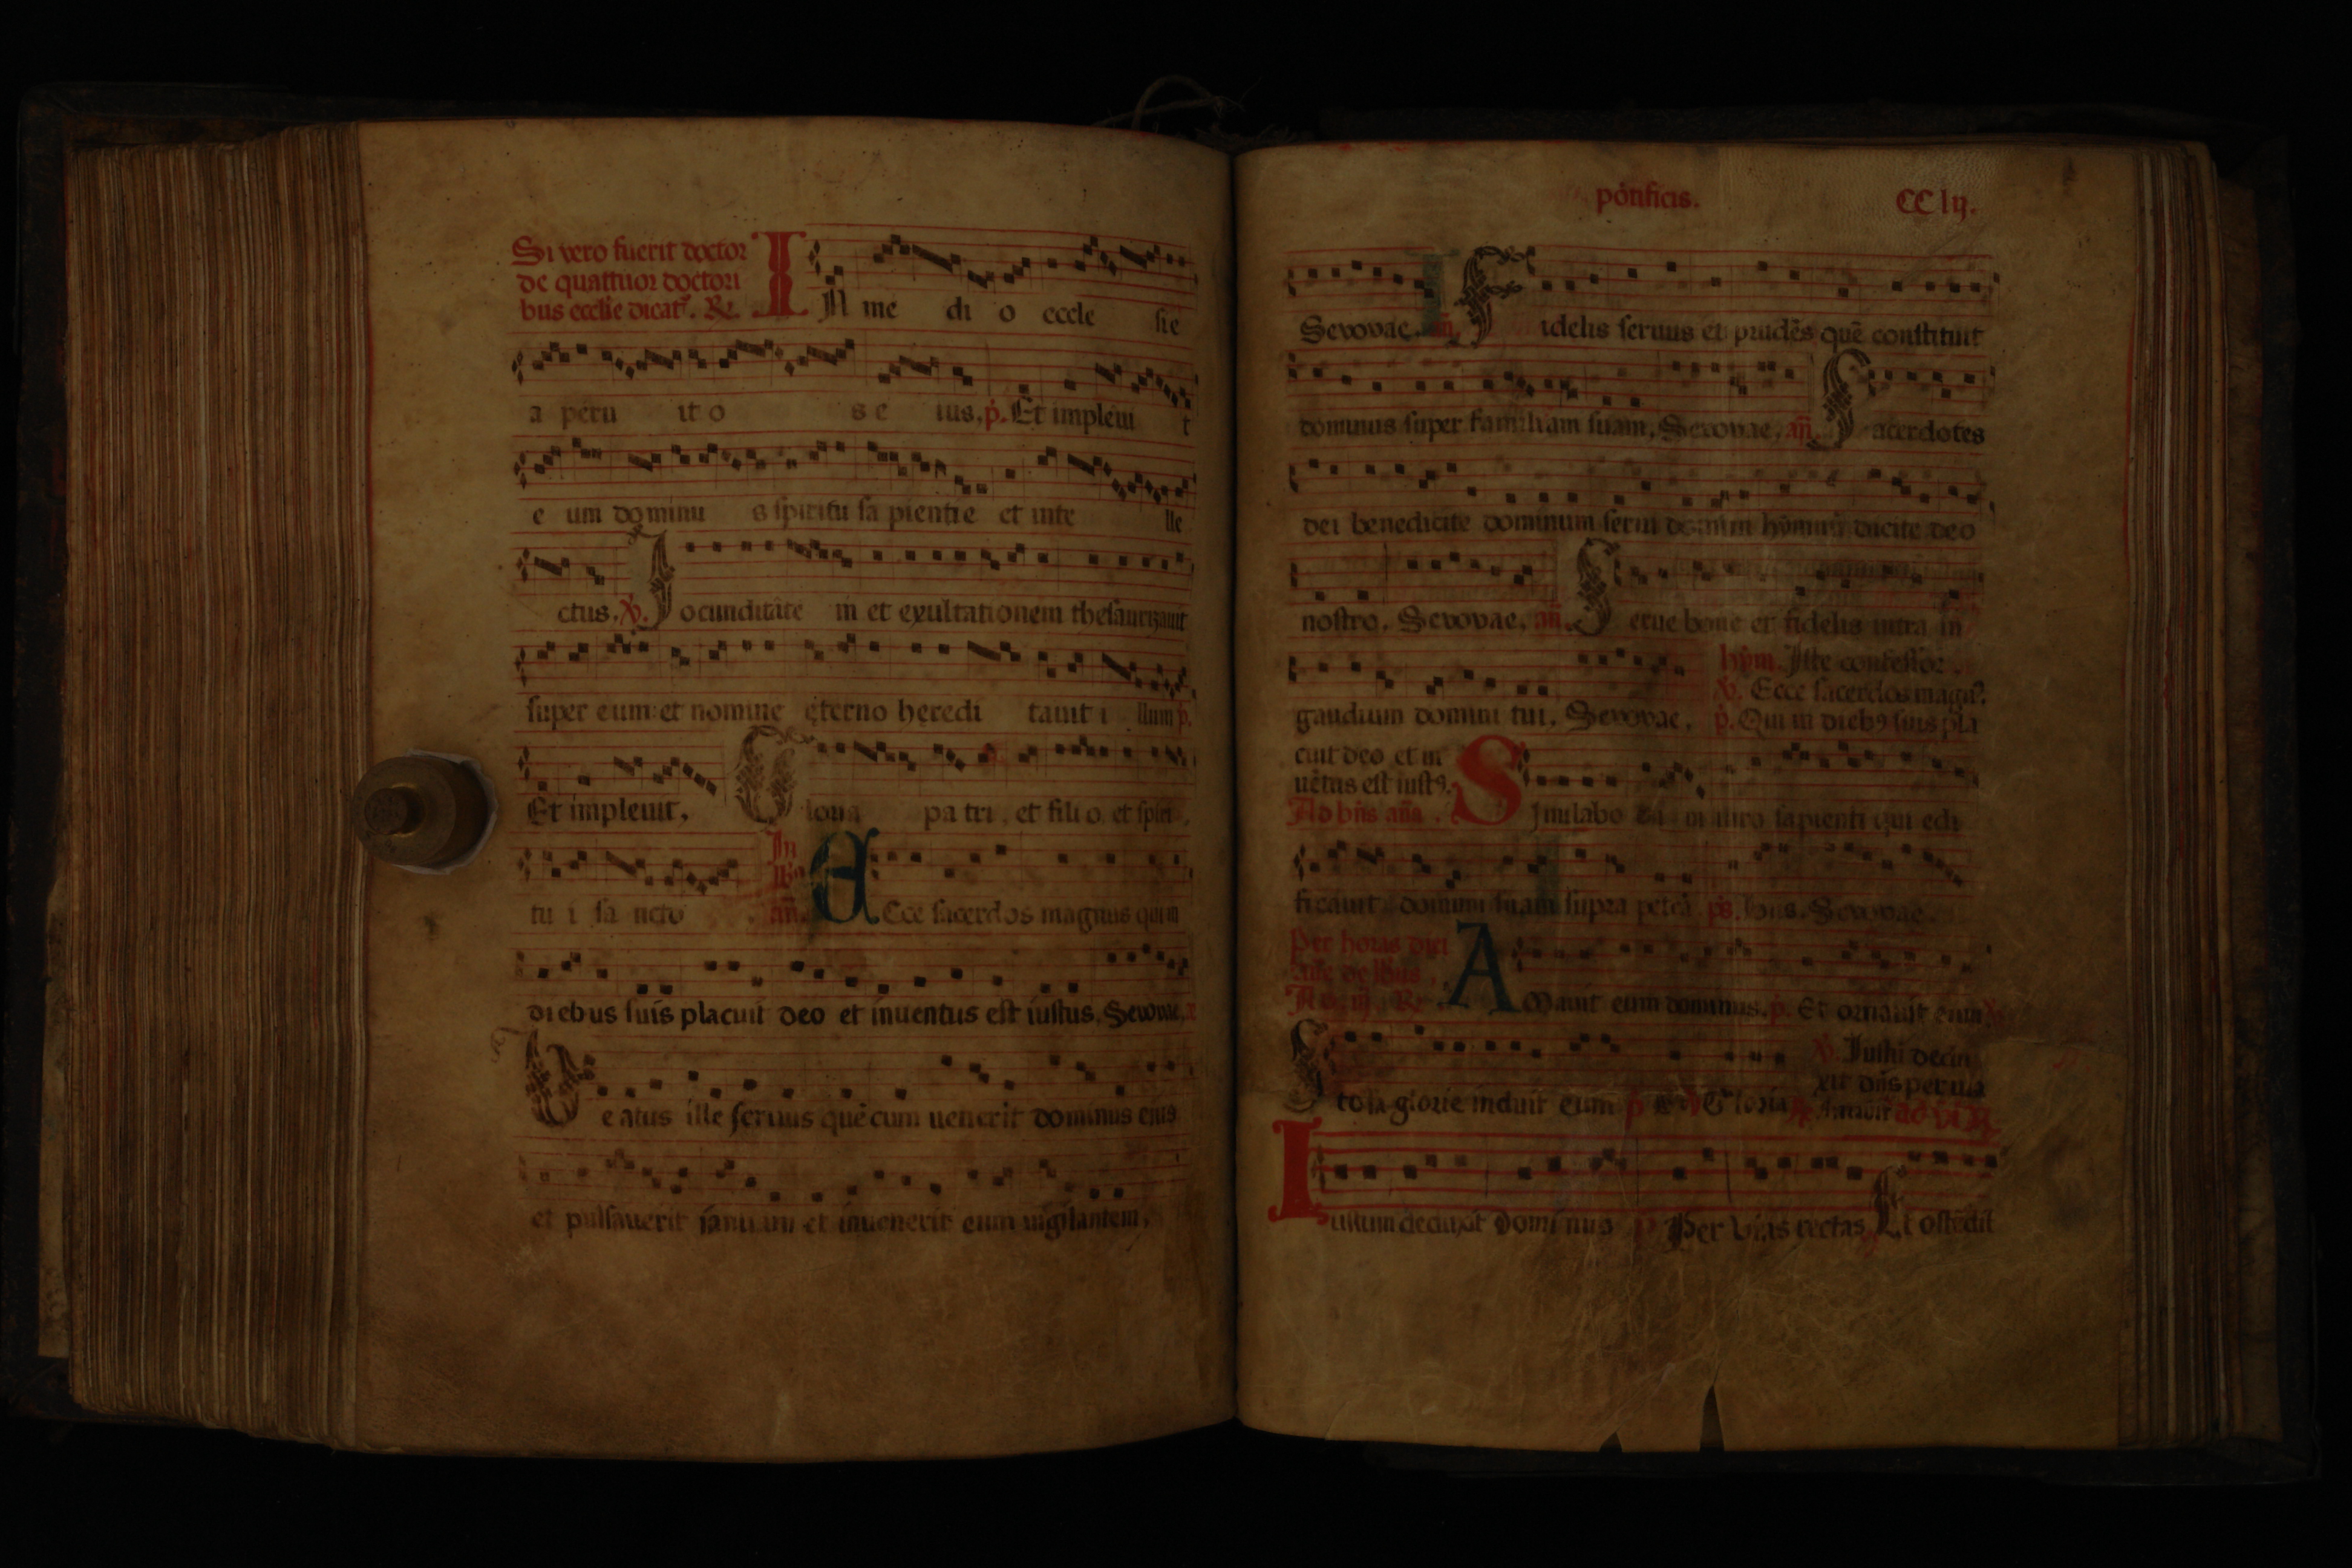 Si vero fuerit doctor
de quattuor doctori
bus ecclie dicat. R. IN me di o eccle sie
a peru it o s e ius, p. Et impleui t
e um dominu s spiritu sa pientie et inte lle
ctus. V. Jocunditate m et exultationem thesaurizauit
super eum: et nomine eterno heredi tauit i llum p.
Et impleuit, Gloria pa tri, et fili o, et spiri
tu i sa ncto In
an. Ecce sacerdos magnus qui in
diebus suis placuit deo et inuentus est iustus. Seuouae,
Beatus ille seruus quē cum uenerit dominus eius
et pulsauerit ianuam et inuenerit eum uigilantem,
pōtificis. CC lij.
Seuouae. an. Fidelis seruus et prudēs quē constituit
dominus super familiam suam, Seuouae, an. Sacerdotes
dei benedicite dominum serui domini hymnum dicite deo
nostro. Seuouae, an. Serue bone et fidelis intra in
hym. Iste confessor.
V. Ecce sacerdos magn⁹.
gaudium domini tui. Seuouae. p. Qui in dieb⁹ suis pla
cuit deo et in
uētus est iust⁹.
Ad bn̄s an̄a. Simulabo eū uiro sapienti qui edi
ficauit domum suam supra petrā ps. Bn̄s. Seuouae.
Per horas
Amauit eum dominus. p. Et ornauit eum
V. Justū dedu
xit dn̄s per uia
Stola glorie induit eum p Gloria
Iustum deduxit dominus p Per uias rectas Et ostēdit